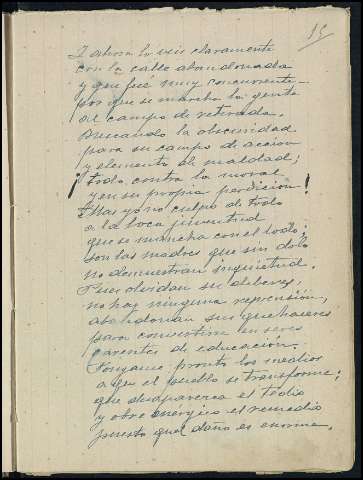 15
I ahora lo veis claramente
con la calle abandonada
y que fué muy concurrente
porque se marcha la gente
al campo de retirada.
Buscando la obscuridad
para su campo de acción
y elemento de maldad;
¡todo contra la moral
y en su propia perdición!
Mas yo no culpo de todo
a la loca juventud
que se mancha con el lodo;
son las madres que sin dolo
no demuestran inquietud.
Pues olvidan sus deberes,
no hay ninguna reprensión,
abandonan sus quehaceres
para convertirse en seres
carentes de educación.
Pónganse pronto los medios
a que el pueblo se transforme;
que desaparezca el tedio
y obre enérgico el remedio
puesto que el daño es enorme.